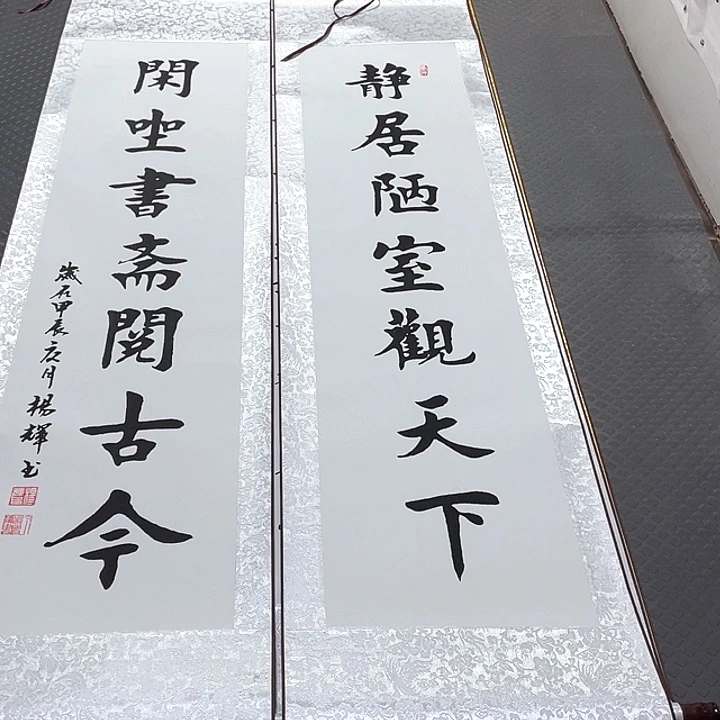 静居陋室觀天下
閑坐書斋閱古今
歲在甲辰 月楊輝书